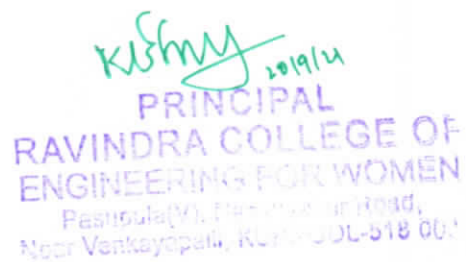 20/9/21
PRINCIPAL
RAVINDRA COLLEGE OF
ENGINEERING FOR WOMEN
Pasupula(V), Road,
Near Venkayapalli,